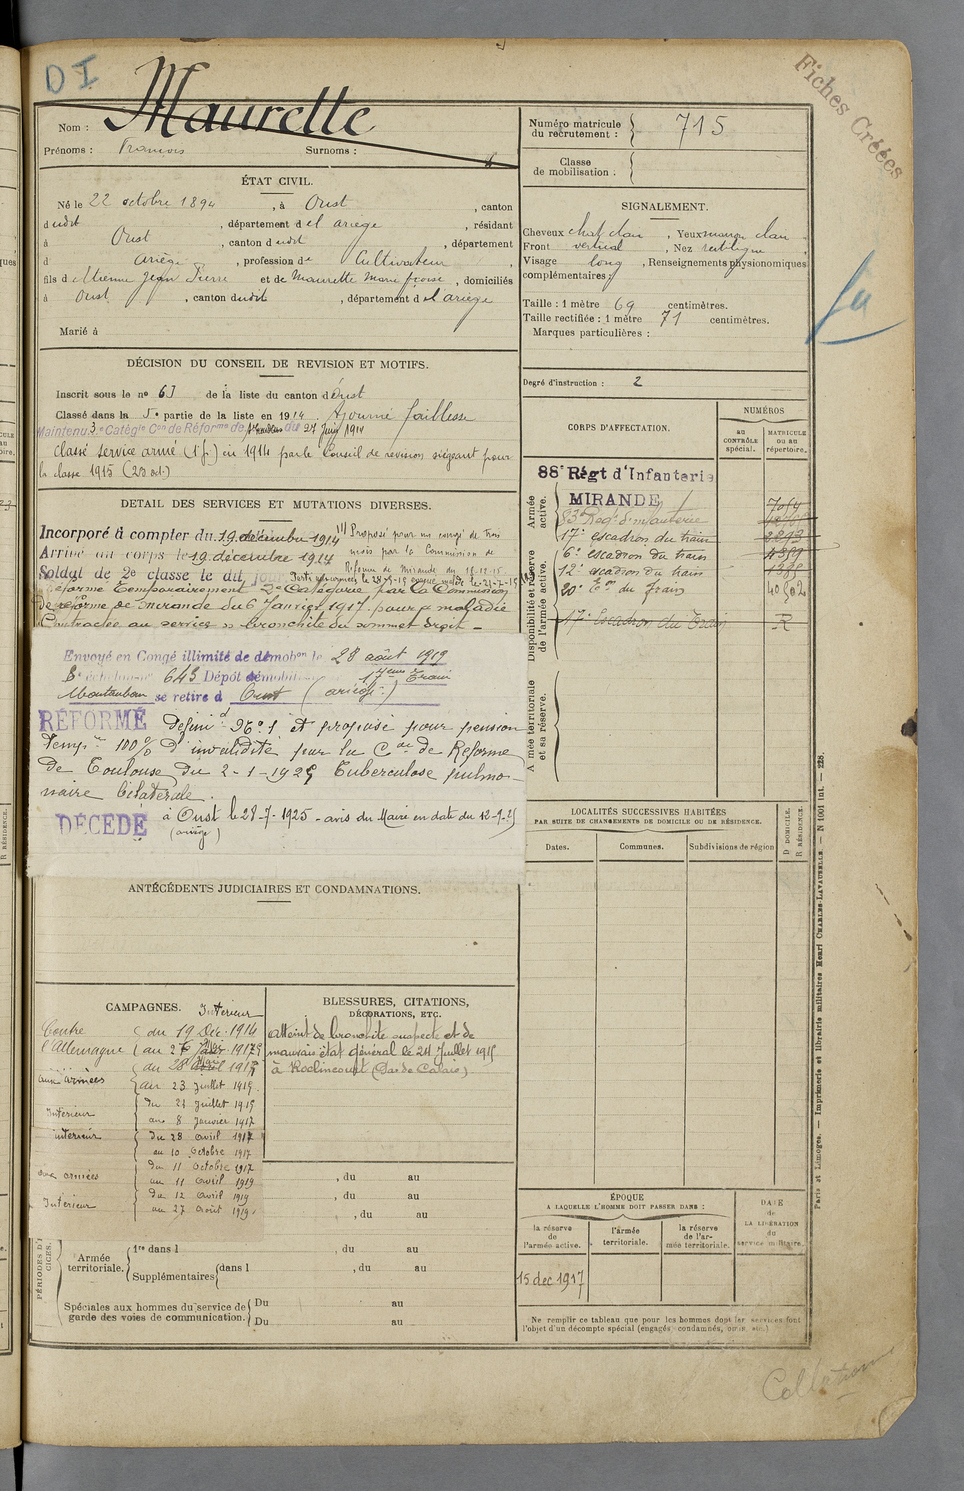 D I
Fiches Créées
Maurette
Nom :
Prénoms : François Surnoms :
Numéro matricule du recrutement : 715
Classe de mobilisation :
ÉTAT CIVIL.
Né le 22 octobre 1894, à Oust, canton
dudit, département de l'ariège, résidant
à Oust, canton dudit, département
d ariège, profession de Cultivateur,
fils d'Etienne Jean Pierre et de Maurette marie fçoise, domiciliés
à Oust, canton dudit, département de l'ariège
Marié à
SIGNALEMENT.
Cheveux chat clair, Yeux marron clair,
Front vertical, Nez rectiligne
Visage long, Renseignements physionomiques
complémentaires :
Taille : 1 mètre 69 centimètres.
Taille rectifiée : 1 mètre 71 centimètres.
Marques particulières :
Degré d'instruction : 2
DÉCISION DU CONSEIL DE REVISION ET MOTIFS.
Inscrit sous le nº de la liste du canton d'Oust
Classé dans la 5e partie de la liste en 1914. Ajourné faiblesse
Maintenu 3e Catégie Con de Réforme de du 24 juin 1914
classé service armé (1 f.) en 1914 par le Conseil de revision siégeant pour
la classe 1915 (23 oct.)
DETAIL DES SERVICES ET MUTATIONS DIVERSES.
Incorporé à compter du 19 décembre 1914
Arrivé au corps le 19 décembre 1914
Soldat de 2e classe le dit jour
Proposé pour un congé de trois
mois par la Commission de
Réforme de Mirande du 18-12-15
Réformé Temporairement 2e Catégorie par la Commission
de réforme de Mirande du 6 Janvier 1917. pour « maladie
Contractée au service » bronchite du sommet droit -
Envoyé en Congé illimité de démobon le 28 août 1919
8e échelon no 643 Dépôt démobilisr 17ème Train
Montauban se retire à Oust (ariège)
RÉFORMÉ Définif No 1 et proposé pour pension
tempre 100% d'invalidité par la Con de Réforme
de Toulouse du 2-1-1925 Tuberculose pulmo-
naire bilatérale.
DÉCÉDÉ à Oust le 28-7-1925 - avis du Maire en date du
(ariège)
ANTÉCÉDENTS JUDICIAIRES ET CONDAMNATIONS.
CORPS D'AFFECTATION.
NUMÉROS
au CONTRÔLE spécial.
MATRICULE OU AU répertoire.
Armée active.
88e Régt d'Infanterie
MIRANDE
83e Régt d'infanterie
17e escadron du train
6e escadron du train
12e escadron du train 1395
20e Eon du Train
17e Escadron du Train R
Disponibilité et réserve de l'armée active.
Armée territoriale et sa réserve.
LOCALITÉS SUCCESSIVES HABITÉES
PAR SUITE DE CHANGEMENTS DE DOMICILE OU DE RÉSIDENCE.
Dates. Communes. Subdivisions de région
D DOMICILE.
R RÉSIDENCE.
CAMPAGNES.
Intérieur
Contre l'Allemagne
du 19 Déc. 1914
aux armées
au 23 juillet 1915
Intérieur
du 24 juillet 1915
au 8 janvier 1917
intérieur
du 28 avril 1917
au 10 Octobre 1917
aux armées
du 11 Octobre 1917
au 11 avril 1919
Intérieur
du 12 avril 1919
au 27 août 1919
BLESSURES, CITATIONS,
DÉCORATIONS, ETC.
atteint de bronchite suspecte et de
mauvais état général le 24 Juillet 1915
à Roclincourt (Pas de Calais)
, du au
, du au
, du au
PÉRIODES D'
CICES.
Armée territoriale.
1re dans l , du au
Supplémentaires dans l , du au
Spéciales aux hommes du service de garde des voies de communication.
Du au
Du au
ÉPOQUE
A LAQUELLE L'HOMME DOIT PASSER DANS :
la réserve de l'armée active.
l'armée territoriale.
la réserve de l'armée territoriale.
DATE de LA LIBÉRATION du service militaire.
15 dec 1917
Ne remplir ce tableau que pour les hommes dont les services font
l'objet d'un décompte spécial (engagés condamnés, omis, etc.)
Paris et Limoges. — Imprimerie et librairie militaires Henri CHARLES-LAVAUZELLE. — N 1001 int. — 228.